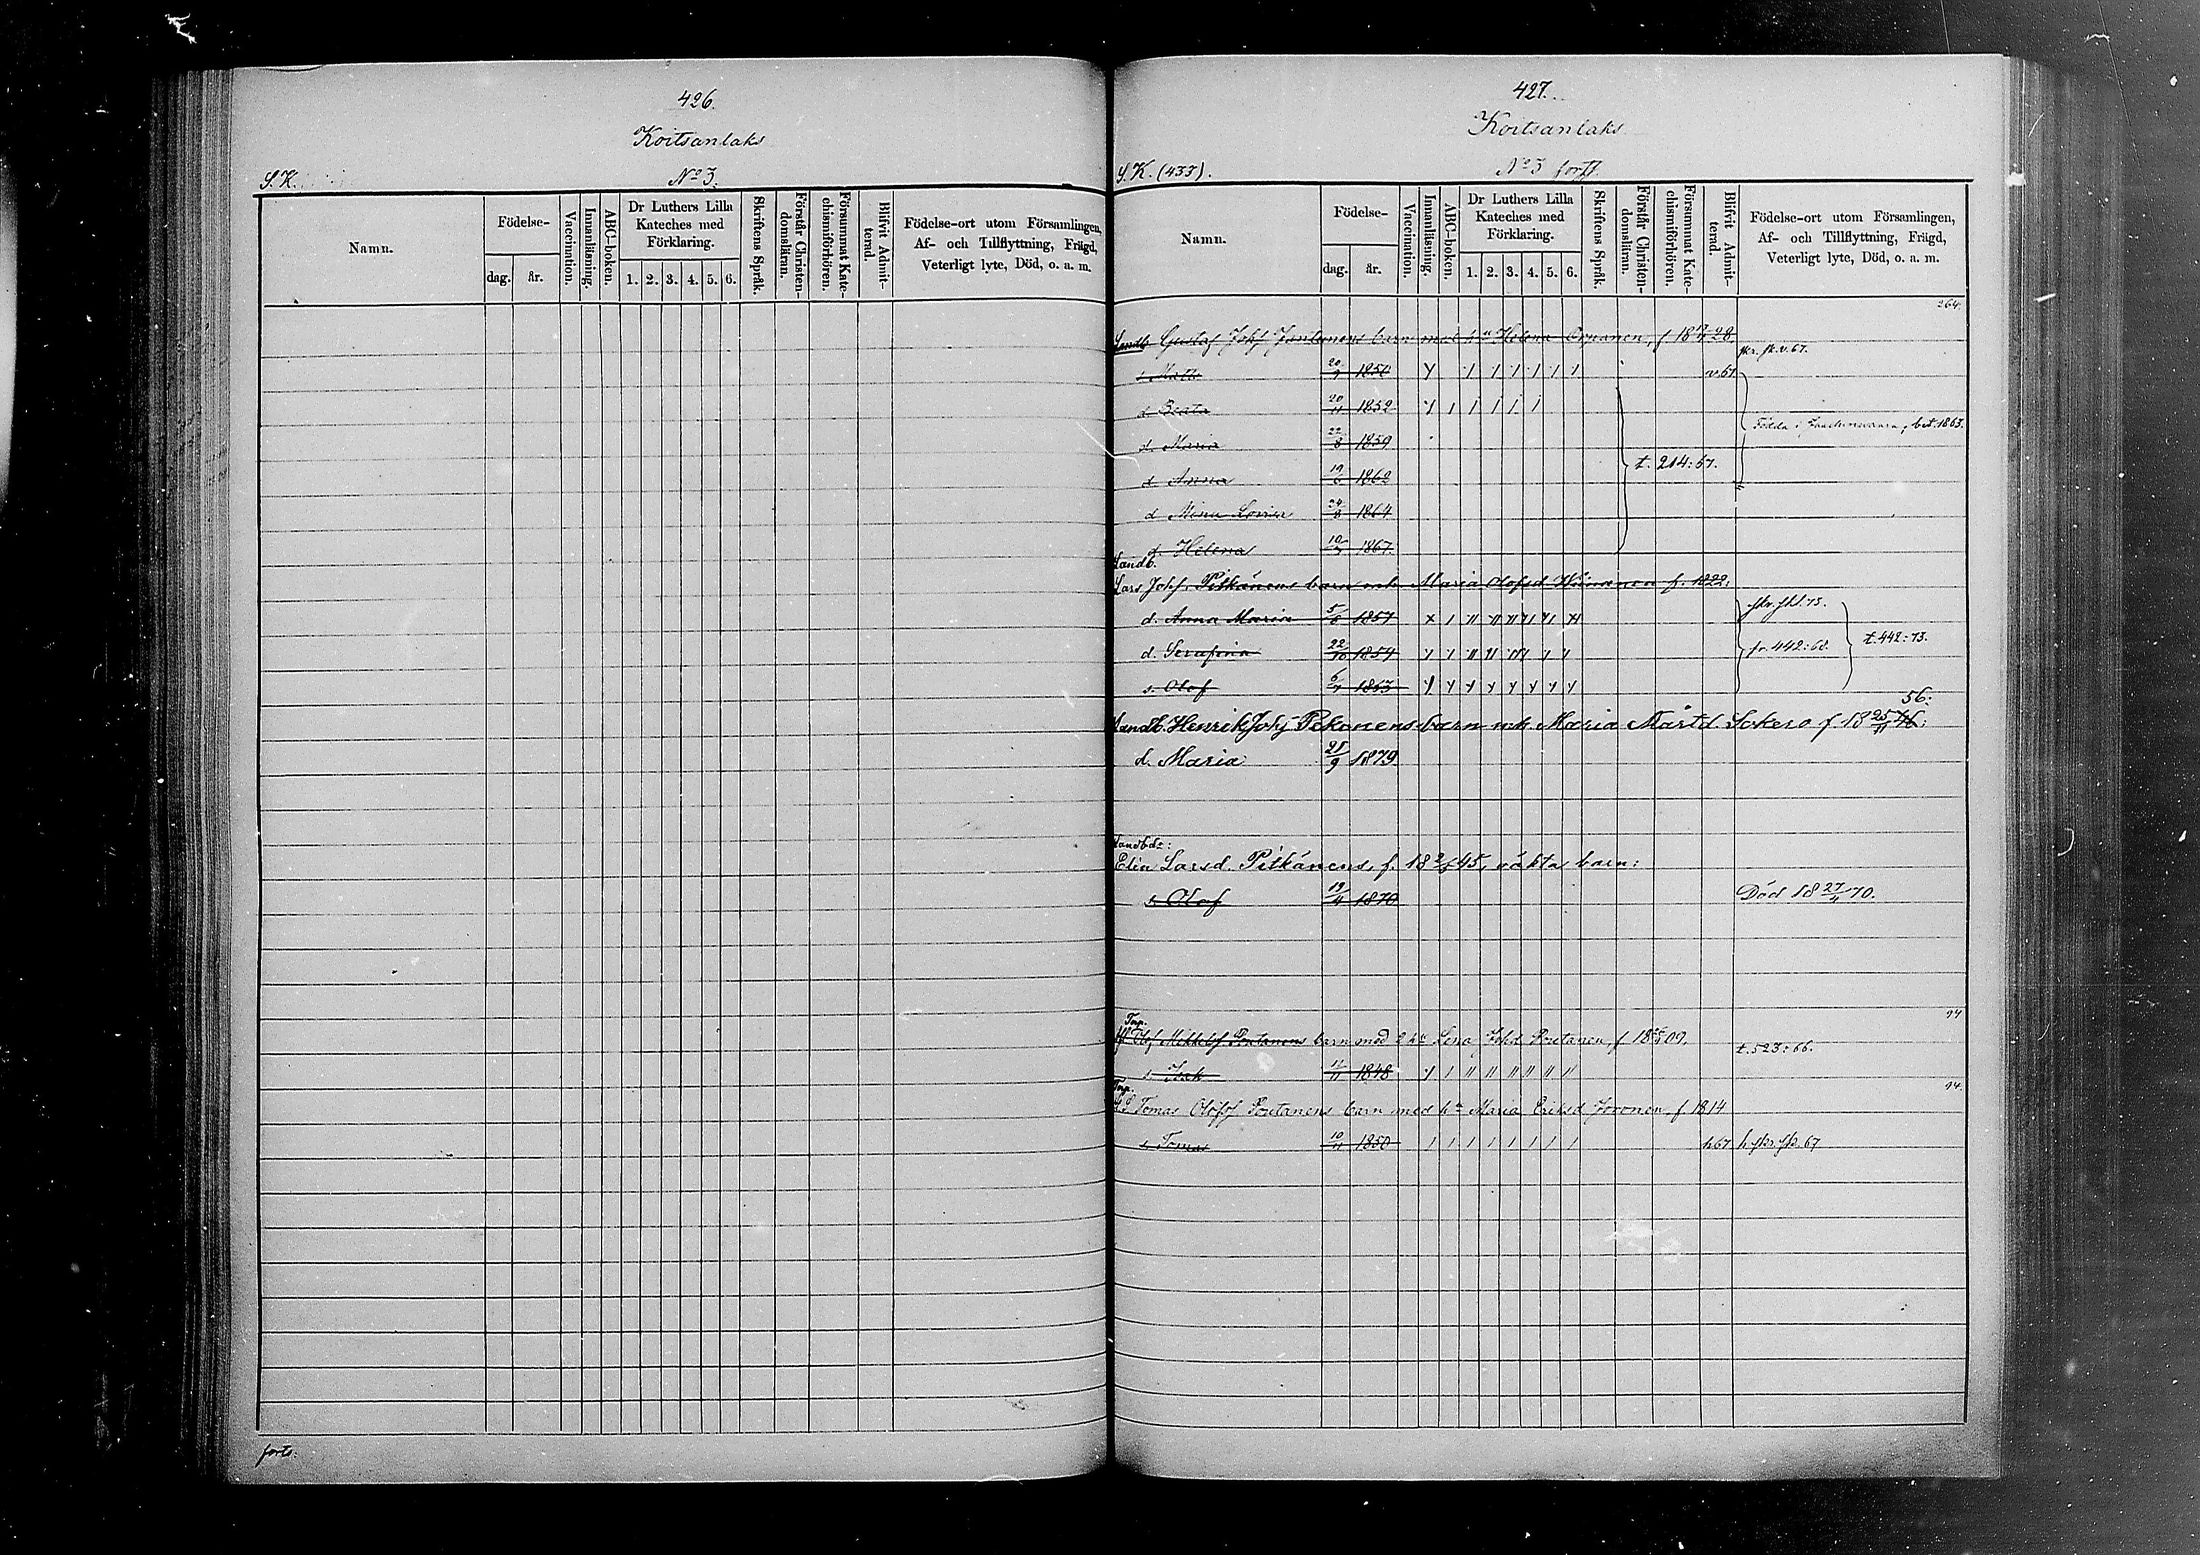 426.
Koitsanlaks
S.K. No 3.
Namn. Födelse- dag. år. Vaccination. Innanläsning. ABC-boken. Dr Luthers Lilla Kateches med Förklaring. 1. 2. 3. 4. 5. 6. Skriftens Språk. Förstår Christendomsläran. Försummat Katechismiförhören. Blifvit Admitterad. Födelse-ort utom Församlingen, Af- och Tillflyttning, Frägd, Veterligt lyte, Död, o. a. m.
forts.
427.
Koitsanlaks
S.K. (433). No 3 forts.
Namn. Födelse- dag. år. Vaccination. Innanläsning. ABC-boken. Dr Luthers Lilla Kateches med Förklaring. 1. 2. 3. 4. 5. 6. Skriftens Språk. Förstår Christendomsläran. Försummat Katechismiförhören. Blifvit Admitterad. Födelse-ort utom Församlingen, Af- och Tillflyttning, Frägd, Veterligt lyte, Död, o. a. m.
264.
Landb. Gustaf Johs barn med hu Helena f 18 28.
v. 67.
20 v. 67
d. Beata 20/11 1852
Födda i bet. 1863.
d. Maria 22/8 1859
t. 214: 67.
d. Anna 19/6 1862
d Lovisa 24/8 1864
d. Helena 10 1867.
Landb.
Lars Johs. Pitkänens barn mh Maria Olofsd f. 1822:
d. Anna Maria 5 1857
d. Serafina 22/10 1859 fr. 442: 68. t. 442: 73.
s. Olof 6 1863
56:
Landb. Henrik Johs Pekonens barn mh. Maria Mårtd. Sokero f. 18 25/11 46:
d. Maria 21/9 1879
Landbdr:
Elin Larsd. Pitkänens, f. 18 45, oäkta barn:
s. Olof 19/4 1870 Död 18 27/4 70.
94
Torp.
Olof Mikkelsf. Poutanens barn med 2 hu Lena Johd Poutanen, f 18 09.
t. 523: 66.
s. Isak 1848
94.
Torp.
Tomas Olofsf Poutanens barn med hu Maria Eriksd f. 1814
s. Tomas 10/11 1850 h. 67